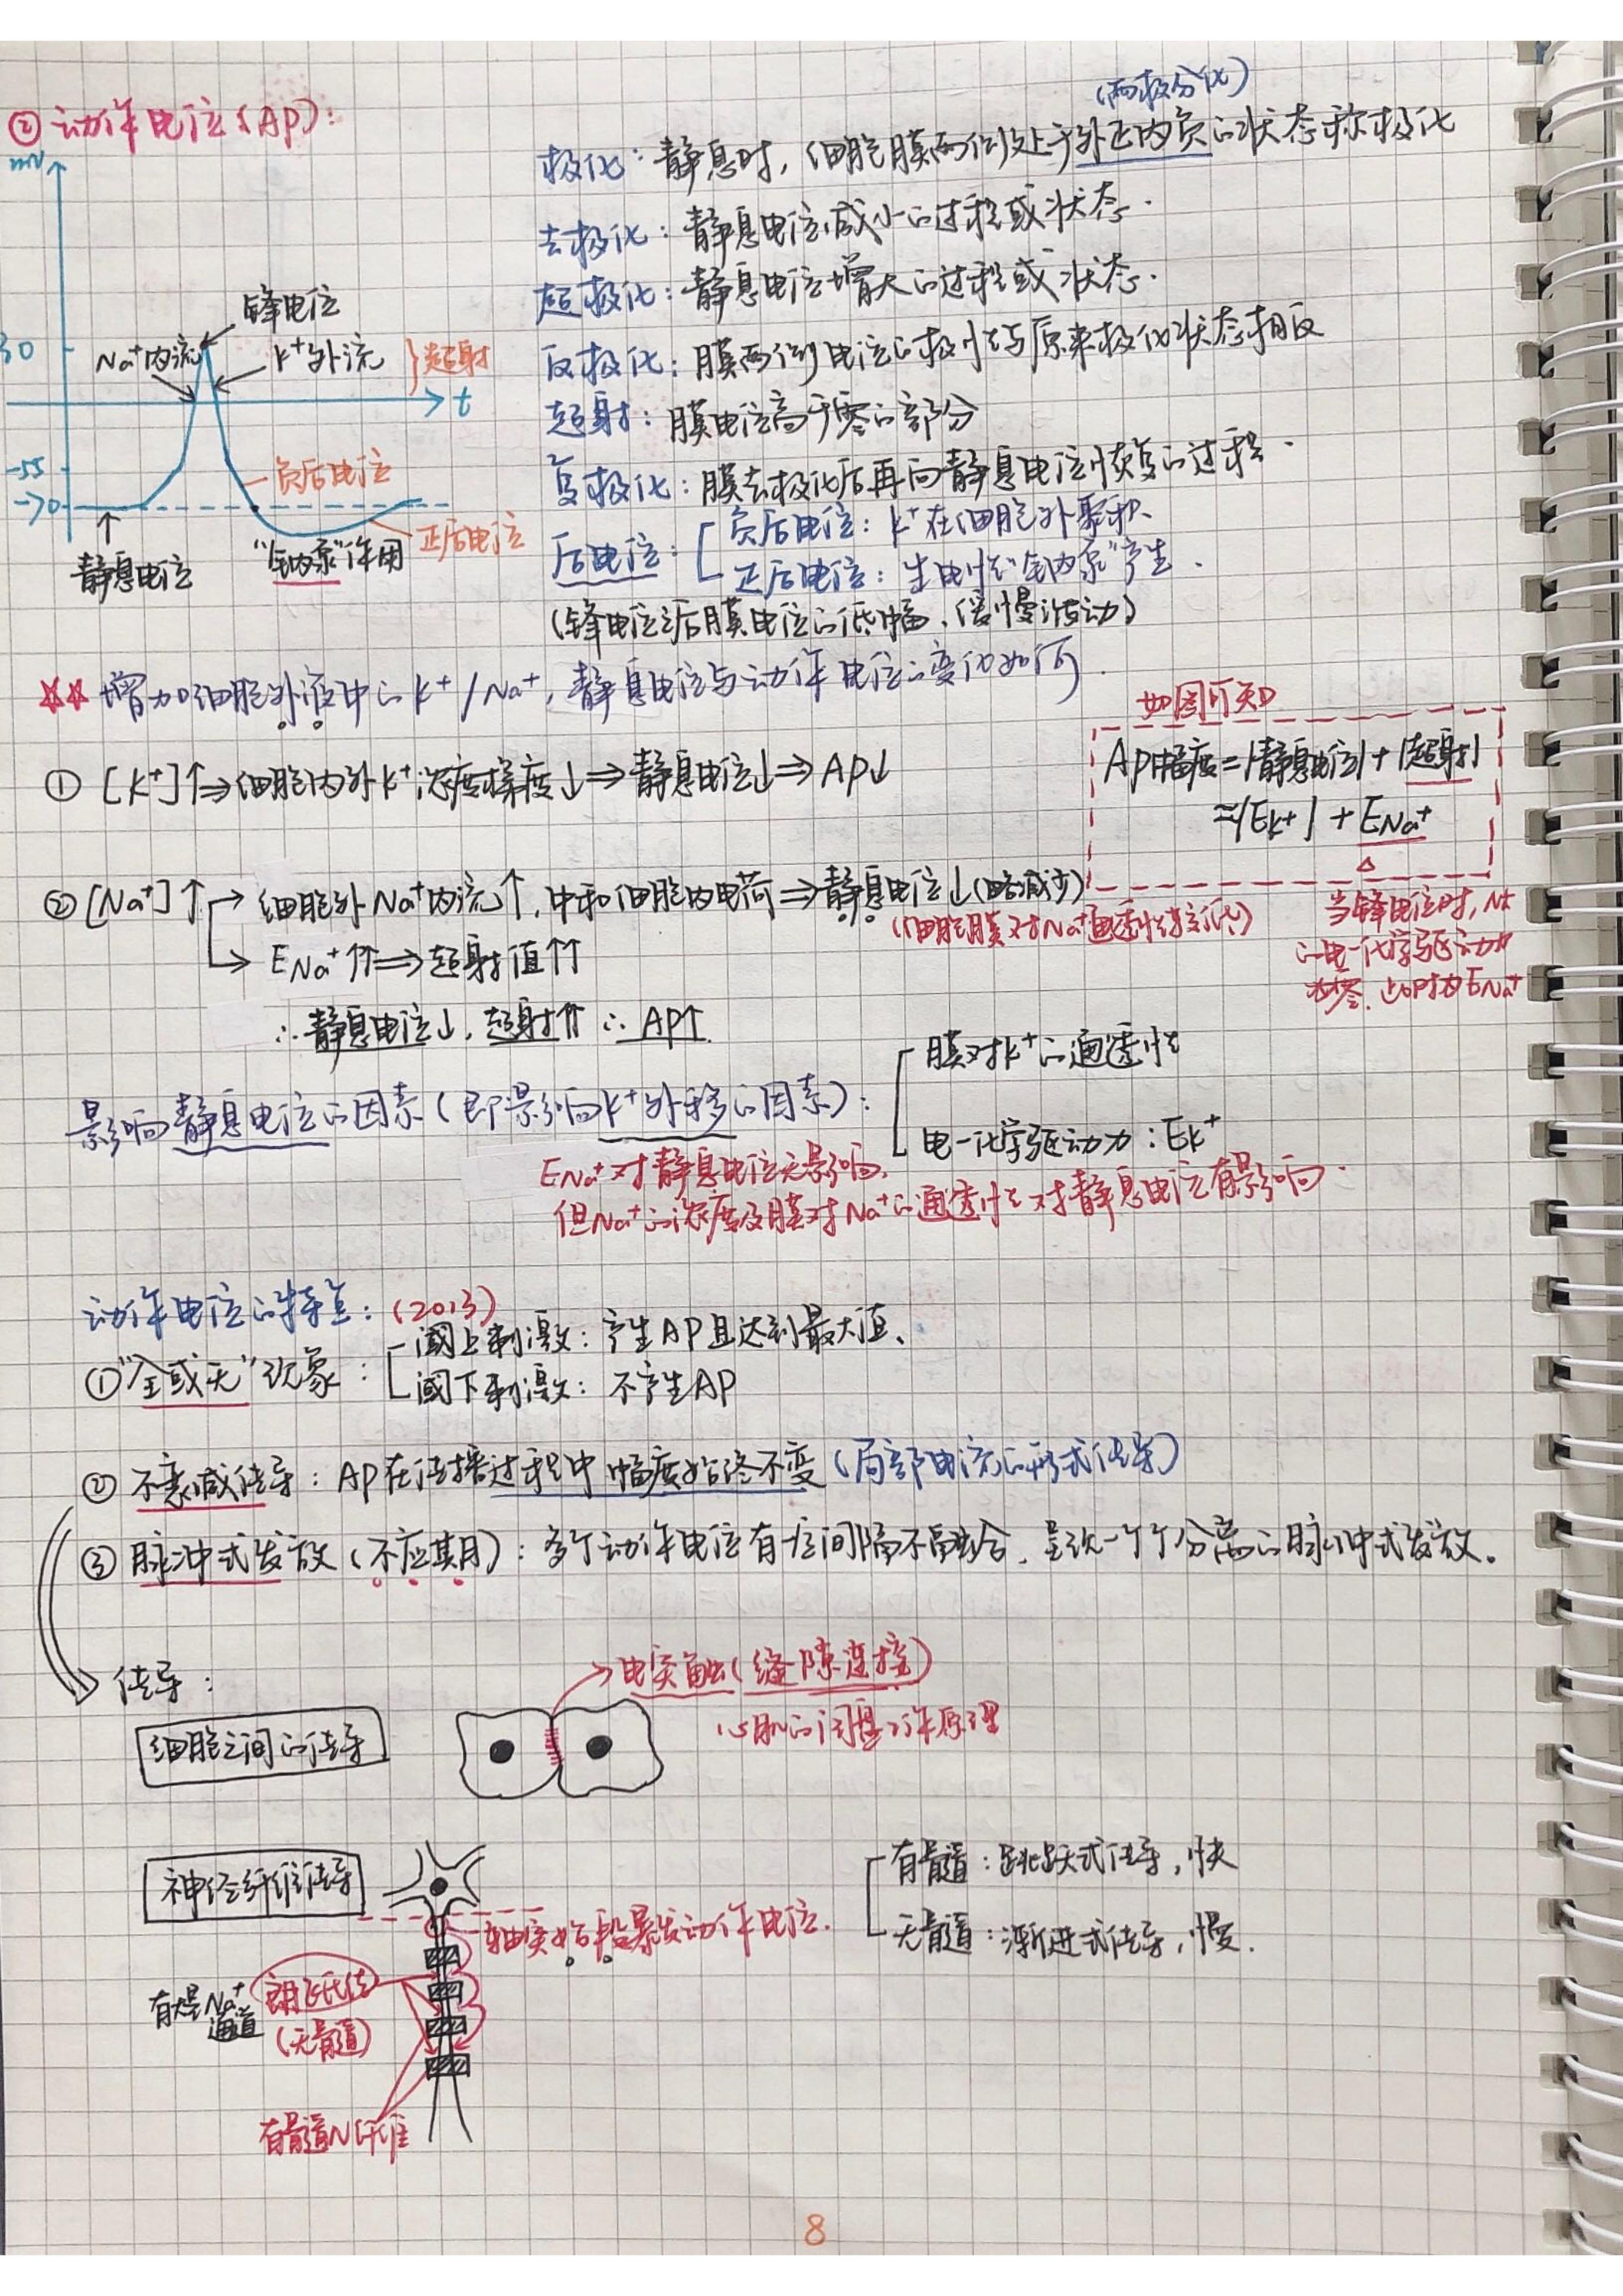 ② 动作电位(AP):
mV
30
-55
-70
锋电位
Na⁺内流
K⁺外流
超射
t
负后电位
正后电位
静息电位
"钠泵"作用
(两极分化)
极化: 静息时, 细胞膜两侧处于外正内负的状态称极化
去极化: 静息电位减小的过程或状态.
超极化: 静息电位增大的过程或状态.
反极化: 膜两侧电位的极性与原来极化状态相反
超射: 膜电位高于零的部分
复极化: 膜去极化后再向静息电位恢复的过程.
后电位: 负后电位: K⁺在细胞外聚积、
正后电位: 生电性"钠泵"产生.
(锋电位之后膜电位的低幅、缓慢波动)
☆☆ 增加细胞外液中的K⁺/Na⁺, 静息电位与动作电位的变化如何.
① [K⁺]↑⇒细胞内外K⁺浓度梯度↓⇒静息电位↓⇒AP↓
如图可知
AP幅度=|静息电位|+|超射|
≈|EK⁺|+ENa⁺
② [Na⁺]↑→细胞外Na⁺内流↑, 中和细胞内电荷⇒静息电位↓(略减少)
(细胞膜对Na⁺通透性较低)
→ ENa⁺⇈⇒超射值⇈
∴静息电位↓, 超射⇈ ∴AP↑.
当锋电位时, Na⁺
的电-化学驱动力
为零, 此时为ENa⁺
影响静息电位的因素(即影响K⁺外移的因素):
膜对K⁺的通透性
电-化学驱动力: EK⁺
ENa⁺对静息电位无影响,
但Na⁺的浓度及膜对Na⁺的通透性对静息电位有影响.
动作电位的特点: (2013)
①"全或无"现象: 阈上刺激: 产生AP且达到最大值、
阈下刺激: 不产生AP
② 不衰减传导: AP在传播过程中幅度始终不变(局部电流的形式传导)
③ 脉冲式发放(不应期): 多个动作电位有一定间隔不融合, 呈现一个个分离的脉冲式发放。
传导:
细胞之间的传导
→电突触(缝隙连接)
心肌的闰盘工作原理
神经纤维传导
轴突始段暴发动作电位.
有髓: 跳跃式传导, 快
无髓: 渐进式传导, 慢.
有大量Na⁺
通道
郎飞氏结
(无髓)
有髓N纤维
8